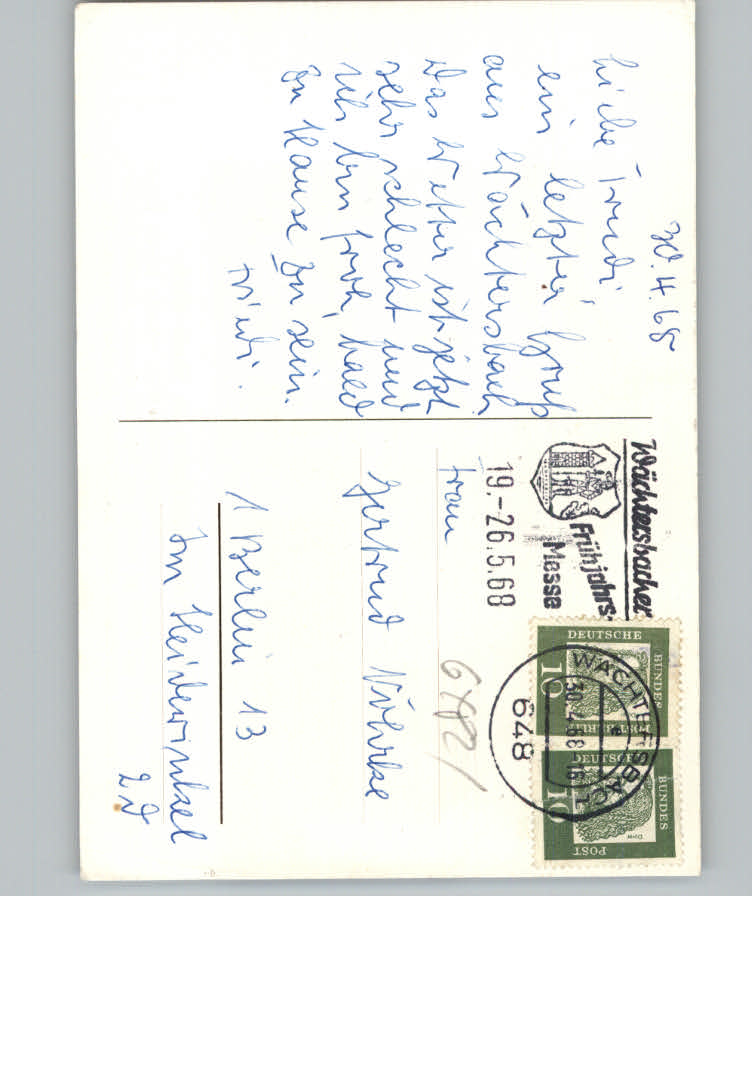 30.4.68
Liebe Trudi.
ein letzter Gruß
aus Wächtersbach
Das Wetter ist jetzt
sehr schlecht und
ich bin froh, bald
zu Hause zu sein.
Wächtersbacher
Frühjahrs-
Messe
19.-26.5.68
DEUTSCHE
BUNDES
POST
10
DEUTSCHE
BUNDES
POST
10
Dürer
WÄCHTERSBACH
30.4.68-16
648
Frau
Gertrud
6482
1 Berlin 13
Im Heidewinkel
2d